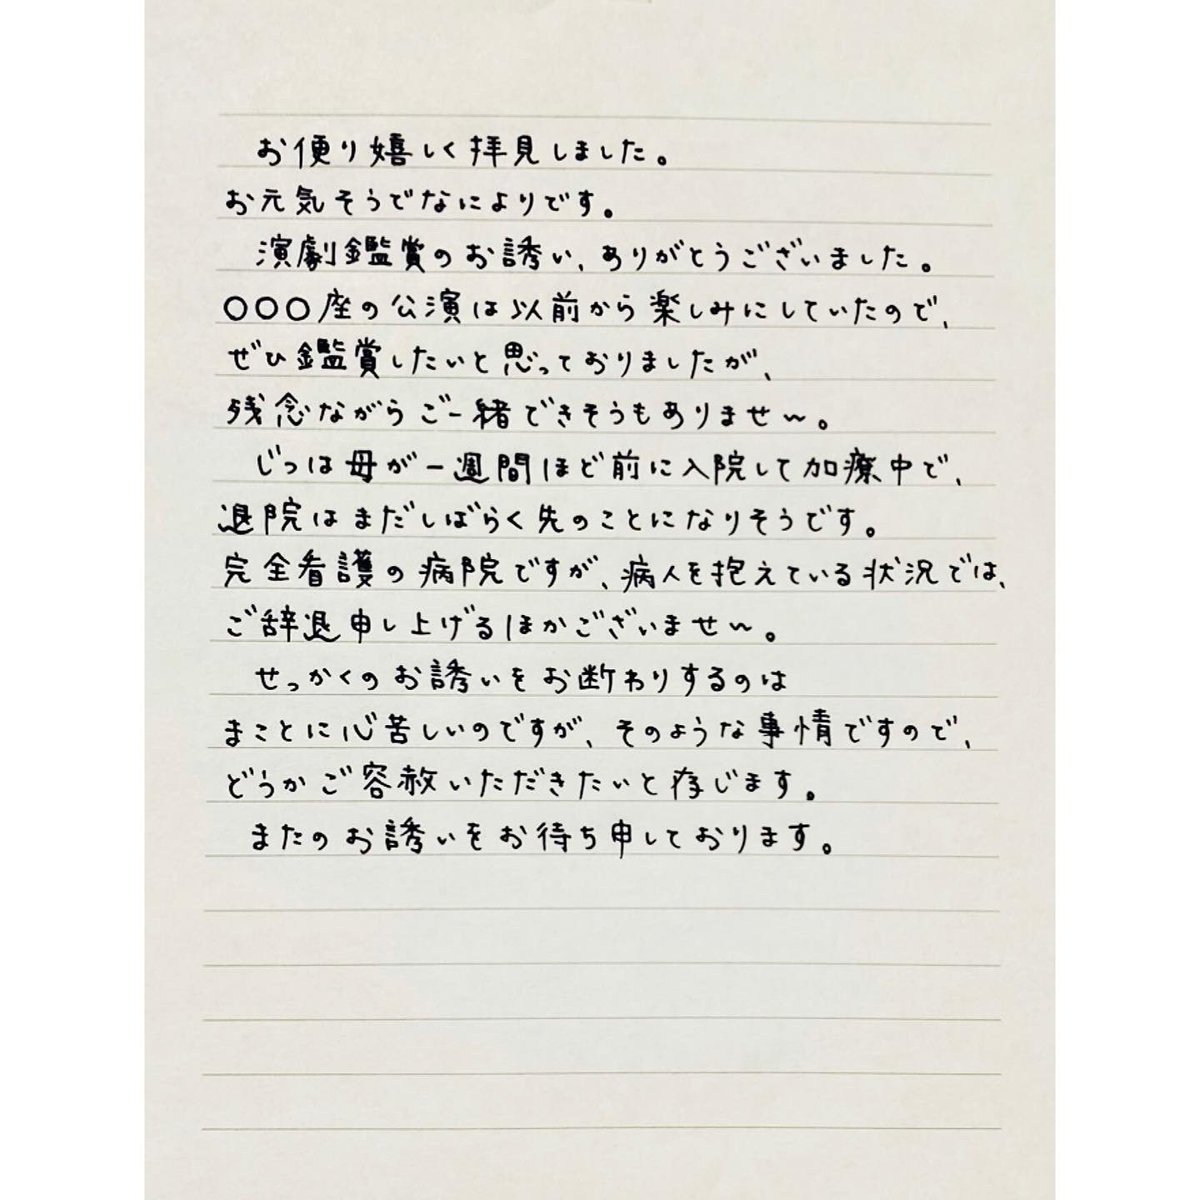 お便り嬉しく拝見しました。
お元気そうでなによりです。
演劇鑑賞のお誘い、ありがとうございました。
〇〇〇座の公演は以前から楽しみにしていたので、
ぜひ鑑賞したいと思っておりましたが、
残念ながらご一緒できそうもありません。
じつは母が一週間ほど前に入院して加療中で、
退院はまだしばらく先のことになりそうです。
完全看護の病院ですが、病人を抱えている状況では、
ご辞退申し上げるほかございません。
せっかくのお誘いをお断わりするのは
まことに心苦しいのですが、そのような事情ですので、
どうかご容赦いただきたいと存じます。
またのお誘いをお待ち申しております。